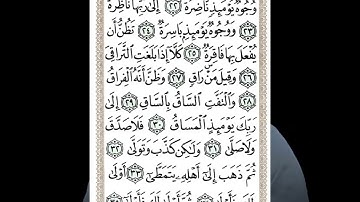 وُجُوهٌ يَوْمَئِذٍ نَّاضِرَةٌ ﴿٢٢﴾ إِلَىٰ رَبِّهَا نَاظِرَةٌ
﴿٢٣﴾ وَوُجُوهٌ يَوْمَئِذٍ بَاسِرَةٌ ﴿٢٤﴾ تَظُنُّ أَن
يُفْعَلَ بِهَا فَاقِرَةٌ ﴿٢٥﴾ كَلَّا إِذَا بَلَغَتِ التَّرَاقِيَ
﴿٢٦﴾ وَقِيلَ مَنْ رَاقٍ ﴿٢٧﴾ وَظَنَّ أَنَّهُ الْفِرَاقُ
﴿٢٨﴾ وَالْتَفَّتِ السَّاقُ بِالسَّاقِ ﴿٢٩﴾ إِلَىٰ
رَبِّكَ يَوْمَئِذٍ الْمَسَاقُ ﴿٣٠﴾ فَلَا صَدَّقَ
وَلَا صَلَّىٰ ﴿٣١﴾ وَلَٰكِن كَذَّبَ وَتَوَلَّىٰ ﴿٣٢﴾
ثُمَّ ذَهَبَ إِلَىٰ أَهْلِهِ يَتَمَطَّىٰ ﴿٣٣﴾ أَوْلَىٰ